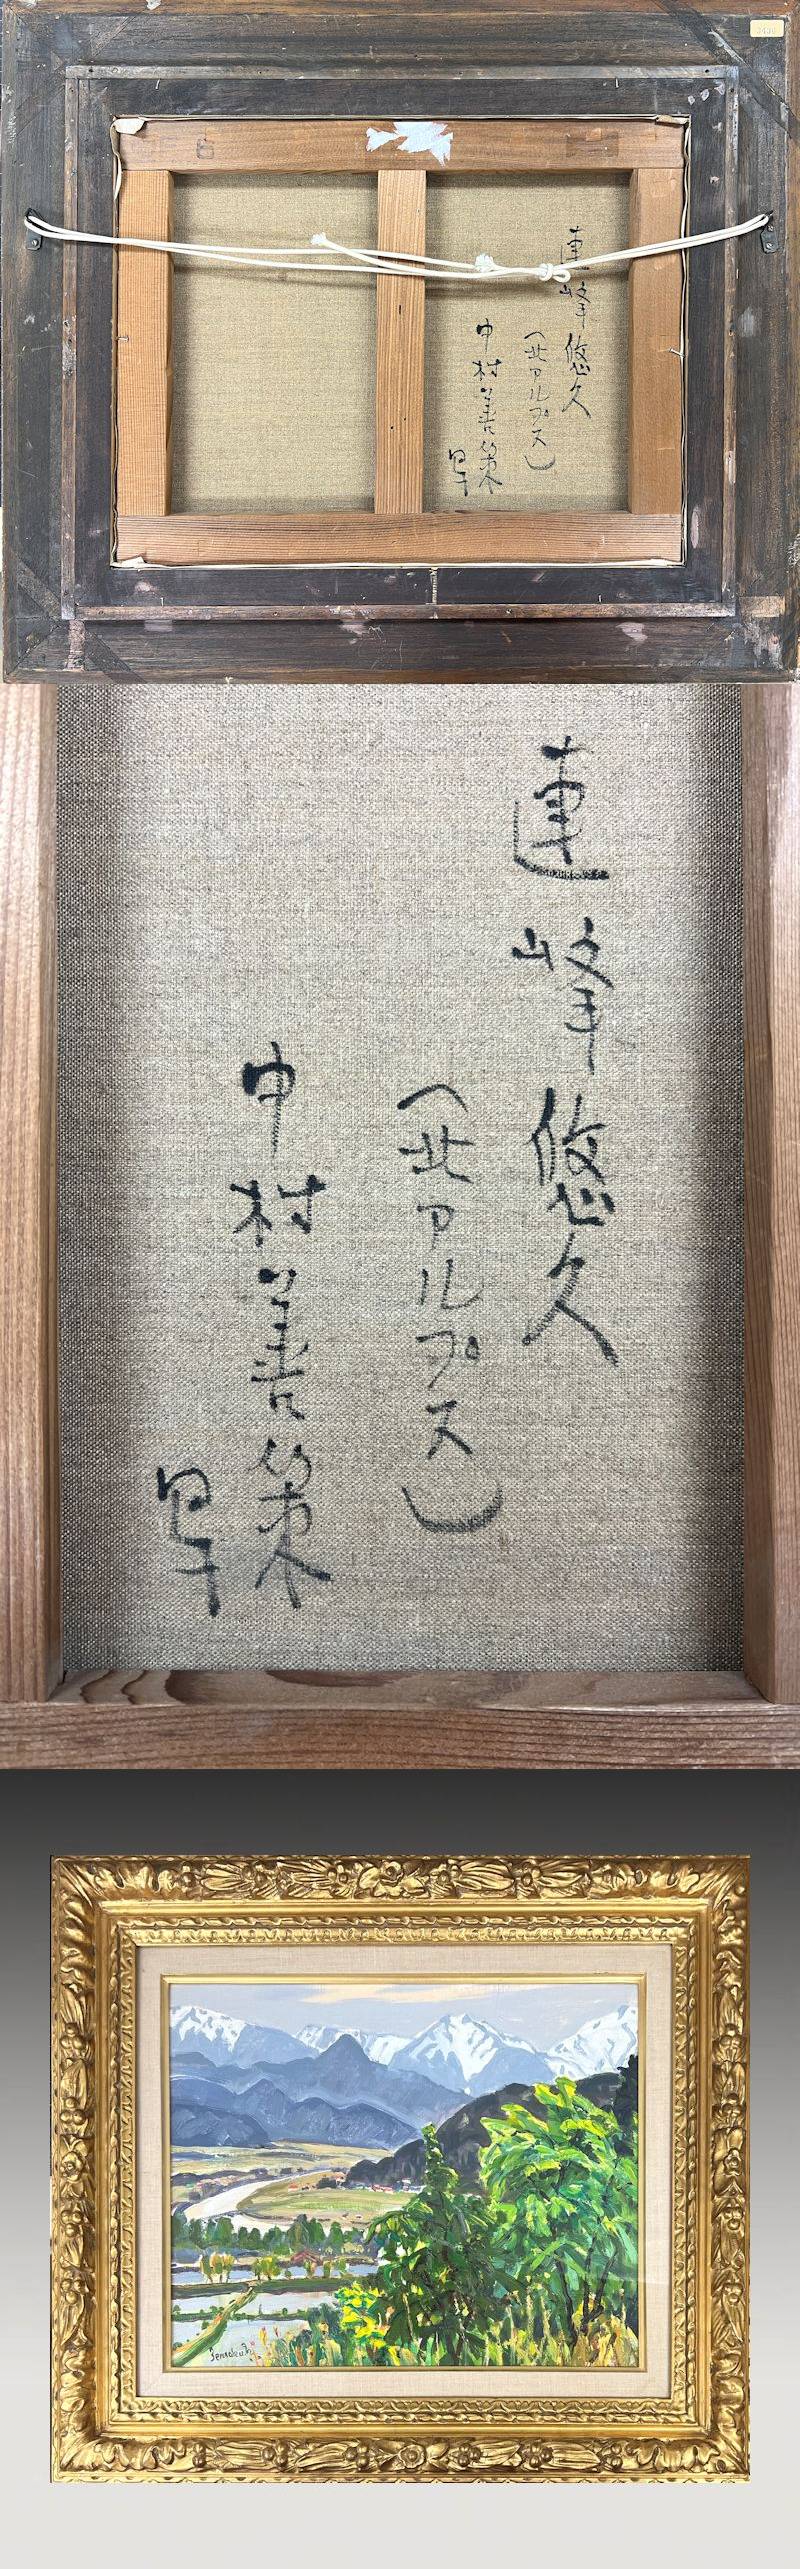 連峰悠久
（北アルプス）
中村善策
連峰悠久
（北アルプス）
中村善策